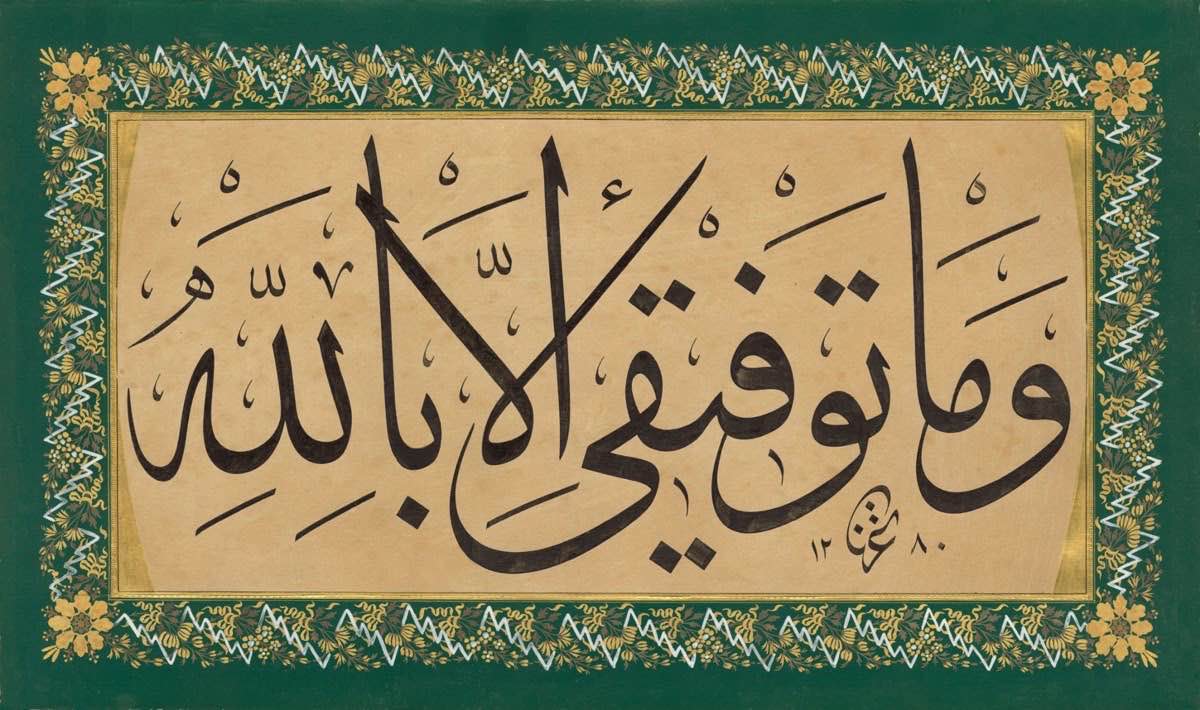 وَمَا تَوْفِيقِى إِلَّا بِاللّٰهِ
١٢٨٠